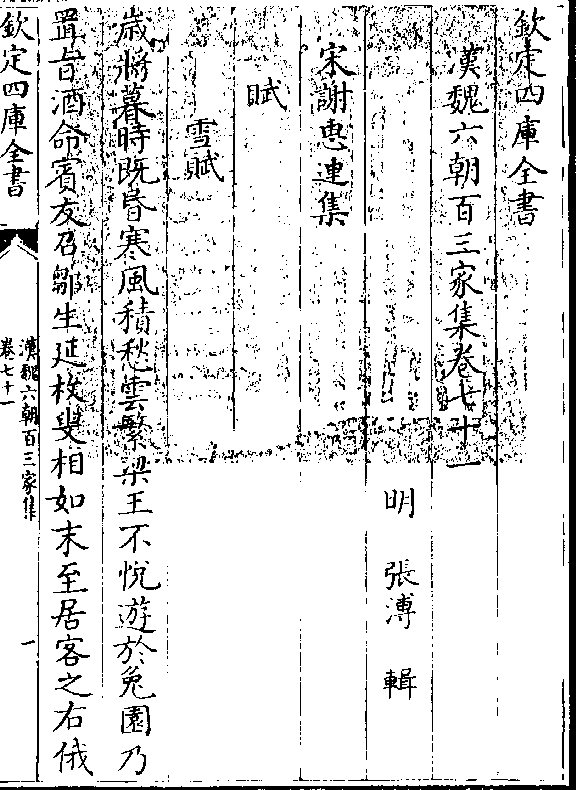 欽定四庫全書
漢魏六朝百三家集卷七十一
明　張溥　輯
宋謝恵連集
賦
雪賦
歳將暮時既昏寒風積愁雲繁梁王不悦遊於兔園乃
置旨酒命賓友召鄒生延枚叟相如末至居客之右俄
欽定四庫全書
漢魏六朝百三家集
卷七十一
一